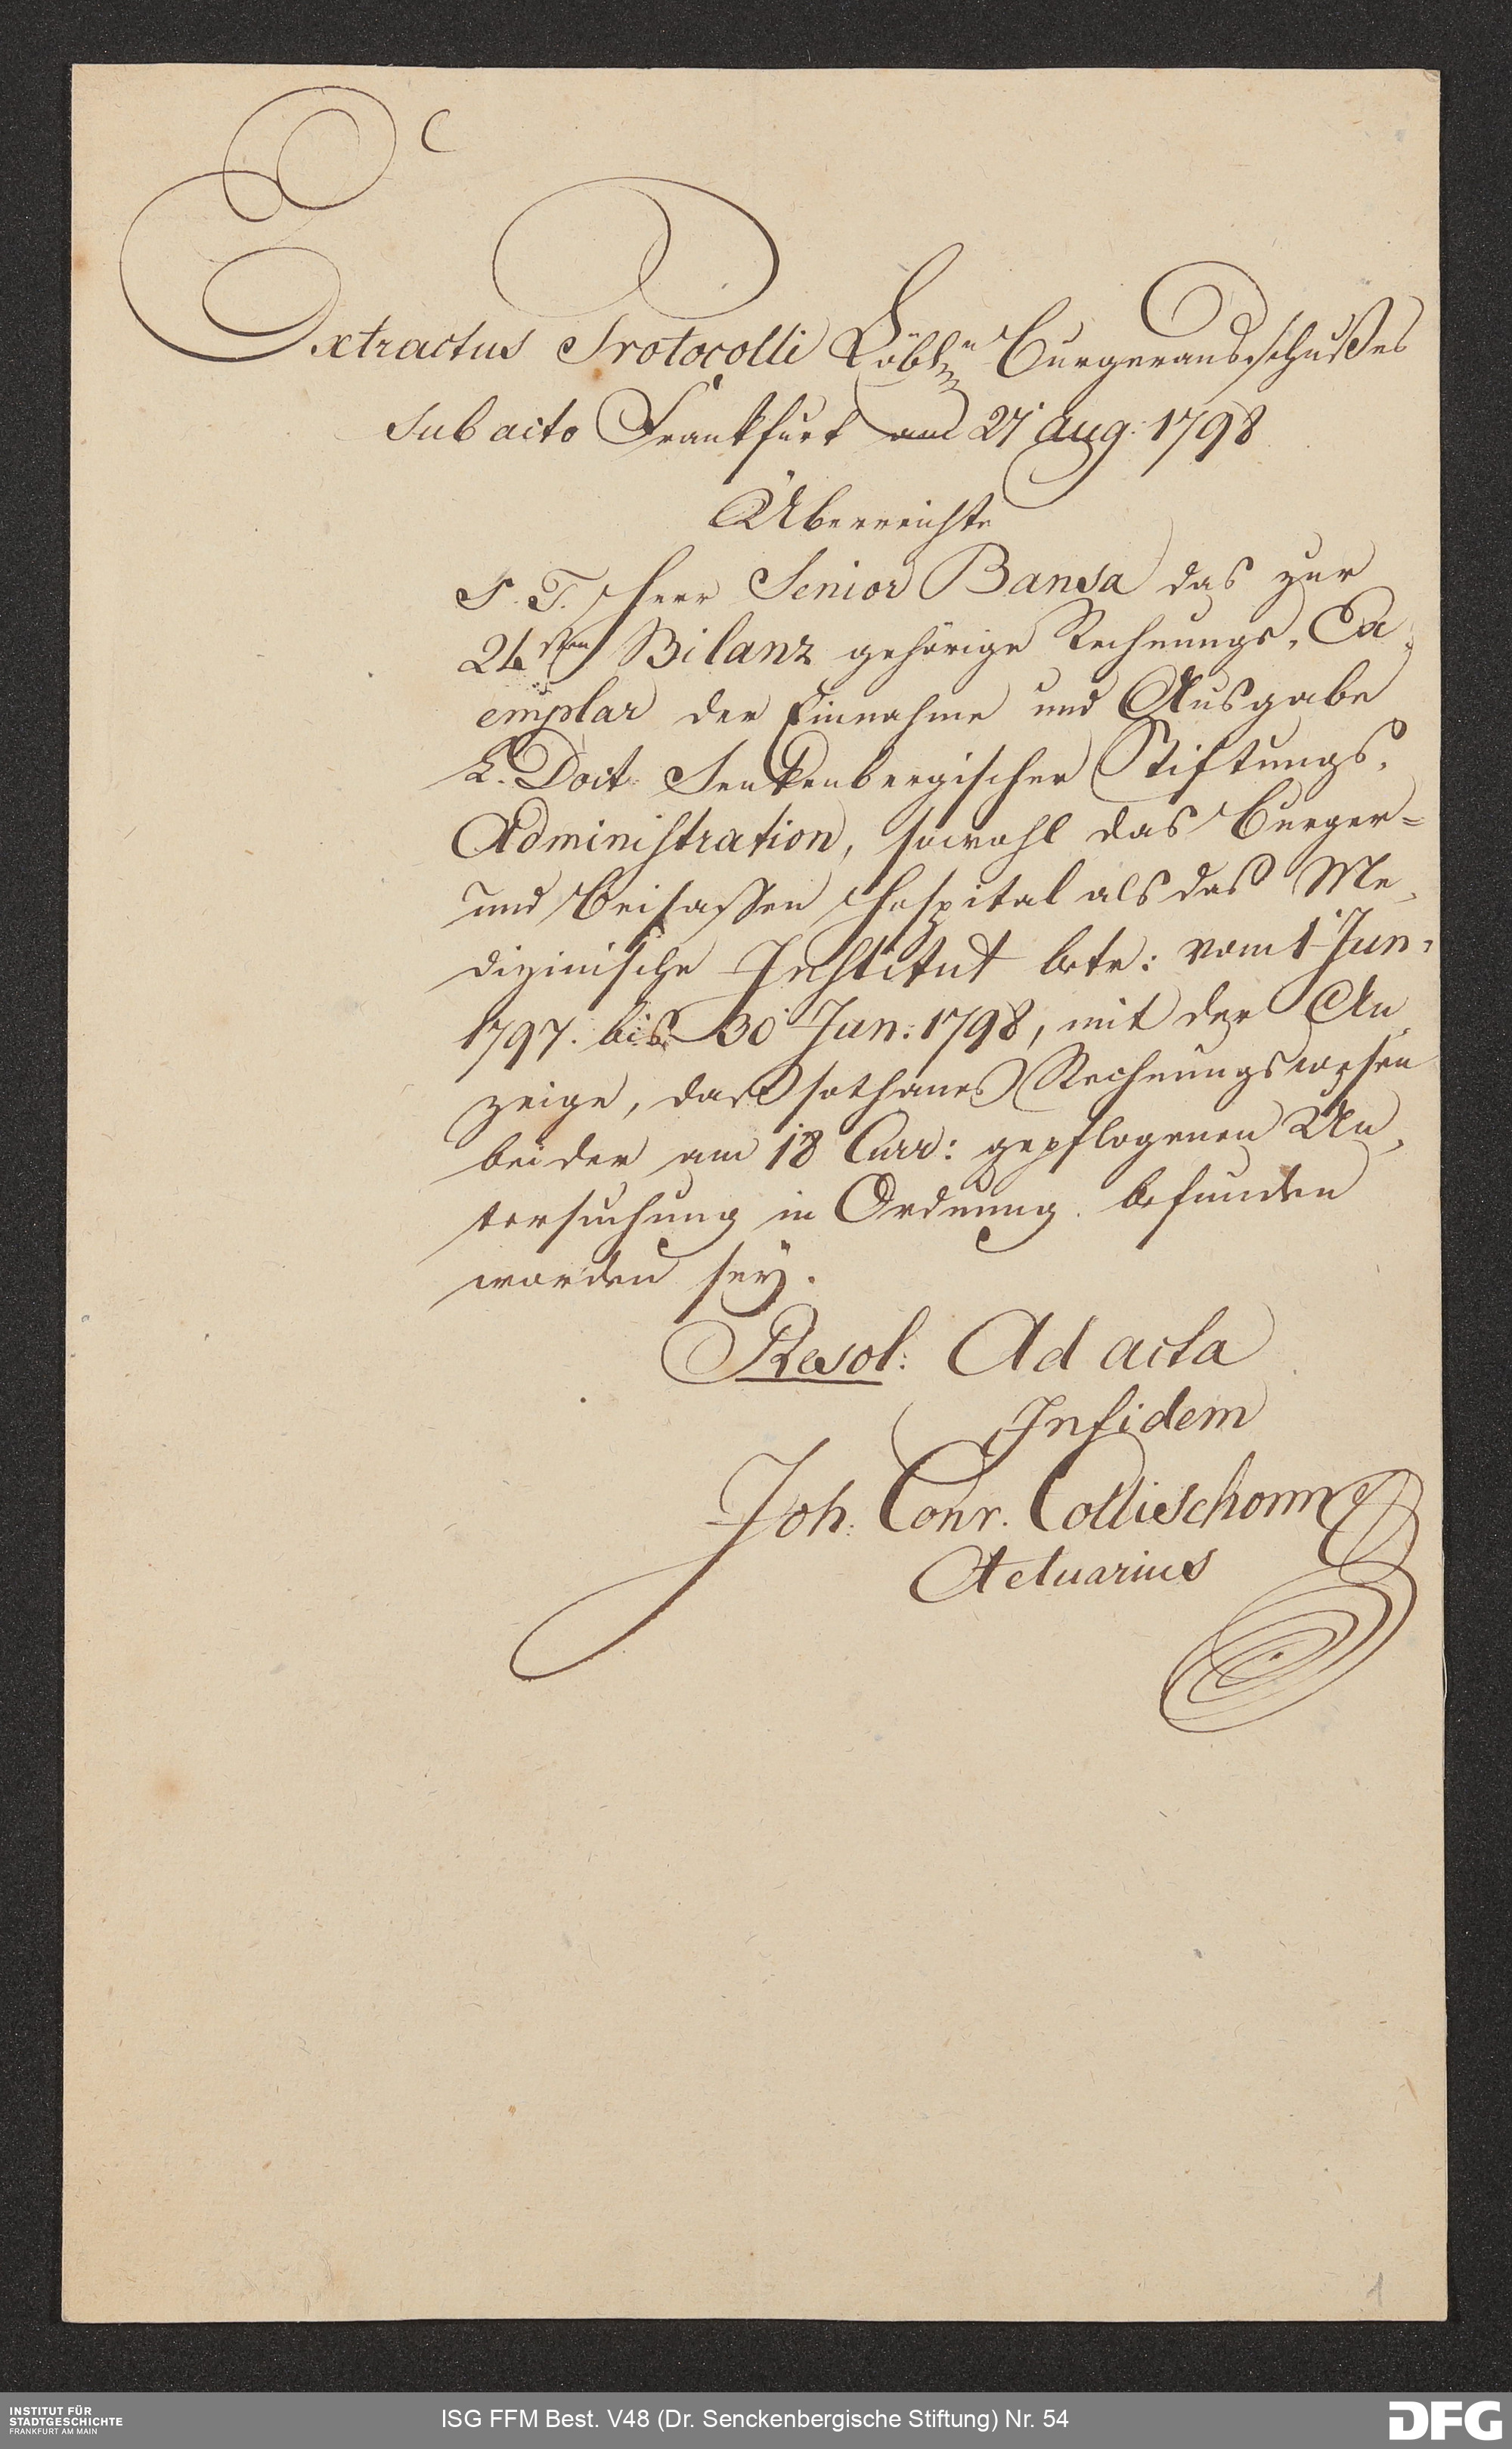 Extractus Protocolli Löbln Burgerausschußes
sub acto Frankfurt am 27 Aug: 1798
Überreichte
P. T. Herr Senior Bansa das zur
24sten Bilanz gehörige Rechnungs, Ex,
emplar der Einnahme und Ausgabe
L. Doct. Senkenbergischer Stiftungs,
Administration, sowohl das Burger=
und Beisassen Hospital als das Me,
dizinische Institut betr: vom 1 Jun.
1797. bis 30 Jun: 1798, mit der An,
zeige, daß sothanes Rechnungswesen
bei der am 18 Curr: gepflogenen Un,
tersuchung in Ordnung befunden
worden sey.
Resol: Ad acta
In fidem
Joh. Conr. Collischonn
Actuarius
1
INSTITUT FÜR
STADTGESCHICHTE
FRANKFURT AM MAIN
ISG FFM Best. V48 (Dr. Senckenbergische Stiftung) Nr. 54
DFG